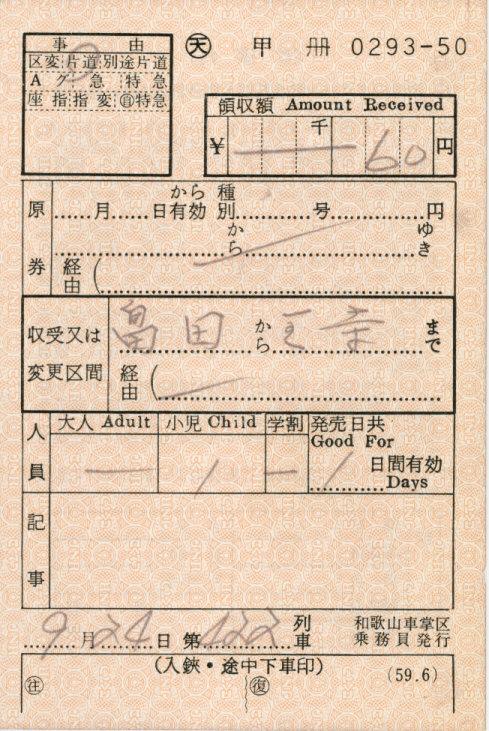 事由 ㊝ 甲 冊 0293-50
区変 片道 別途片道
A グ 急 特急
座 指 指 変 ㊞特急
領収額 Amount Received
千
¥ 60 円
から 種
原 月 日有効 別 号 円
か ゆ
ら き
券 経由 (
収受又は 畠田 から 王寺 まで
変更区間 経由 (
人員 大人 Adult 小児 Child 学割 発売日共
Good For
一 1 一 1 日間有効
Days
記事
9月24日 第422 列車 和歌山車掌区
乗務員発行
(入鋏・途中下車印)
㊟ 復 (59.6)